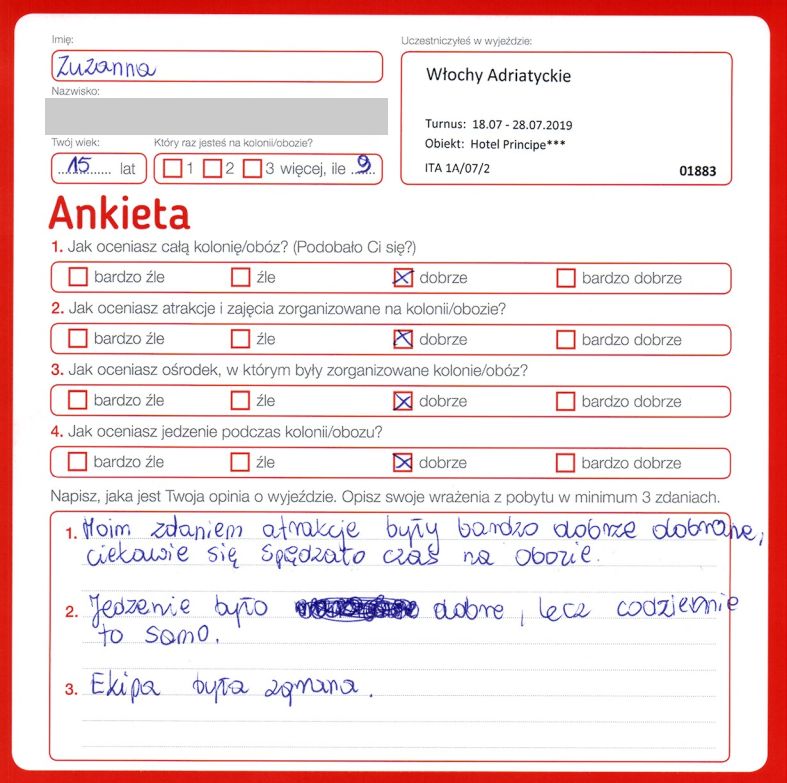 Imię:
Zuzanna
Nazwisko:
Twój wiek:
15 lat
Który raz jesteś na kolonii/obozie?
1 2 3 więcej, ile 9
Uczestniczyłeś w wyjeździe:
Włochy Adriatyckie
Turnus: 18.07 - 28.07.2019
Obiekt: Hotel Principe***
ITA 1A/07/2 01883
Ankieta
1. Jak oceniasz całą kolonię/obóz? (Podobało Ci się?)
bardzo źle źle dobrze bardzo dobrze
2. Jak oceniasz atrakcje i zajęcia zorganizowane na kolonii/obozie?
bardzo źle źle dobrze bardzo dobrze
3. Jak oceniasz ośrodek, w którym były zorganizowane kolonie/obóz?
bardzo źle źle dobrze bardzo dobrze
4. Jak oceniasz jedzenie podczas kolonii/obozu?
bardzo źle źle dobrze bardzo dobrze
Napisz, jaka jest Twoja opinia o wyjeździe. Opisz swoje wrażenia z pobytu w minimum 3 zdaniach.
1. Moim zdaniem atrakcje były bardzo dobrze dobrane,
ciekawie się spędzało czas na obozie.
2. Jedzenie było dobre, lecz codziennie
to samo.
3. Ekipa była zgrana.